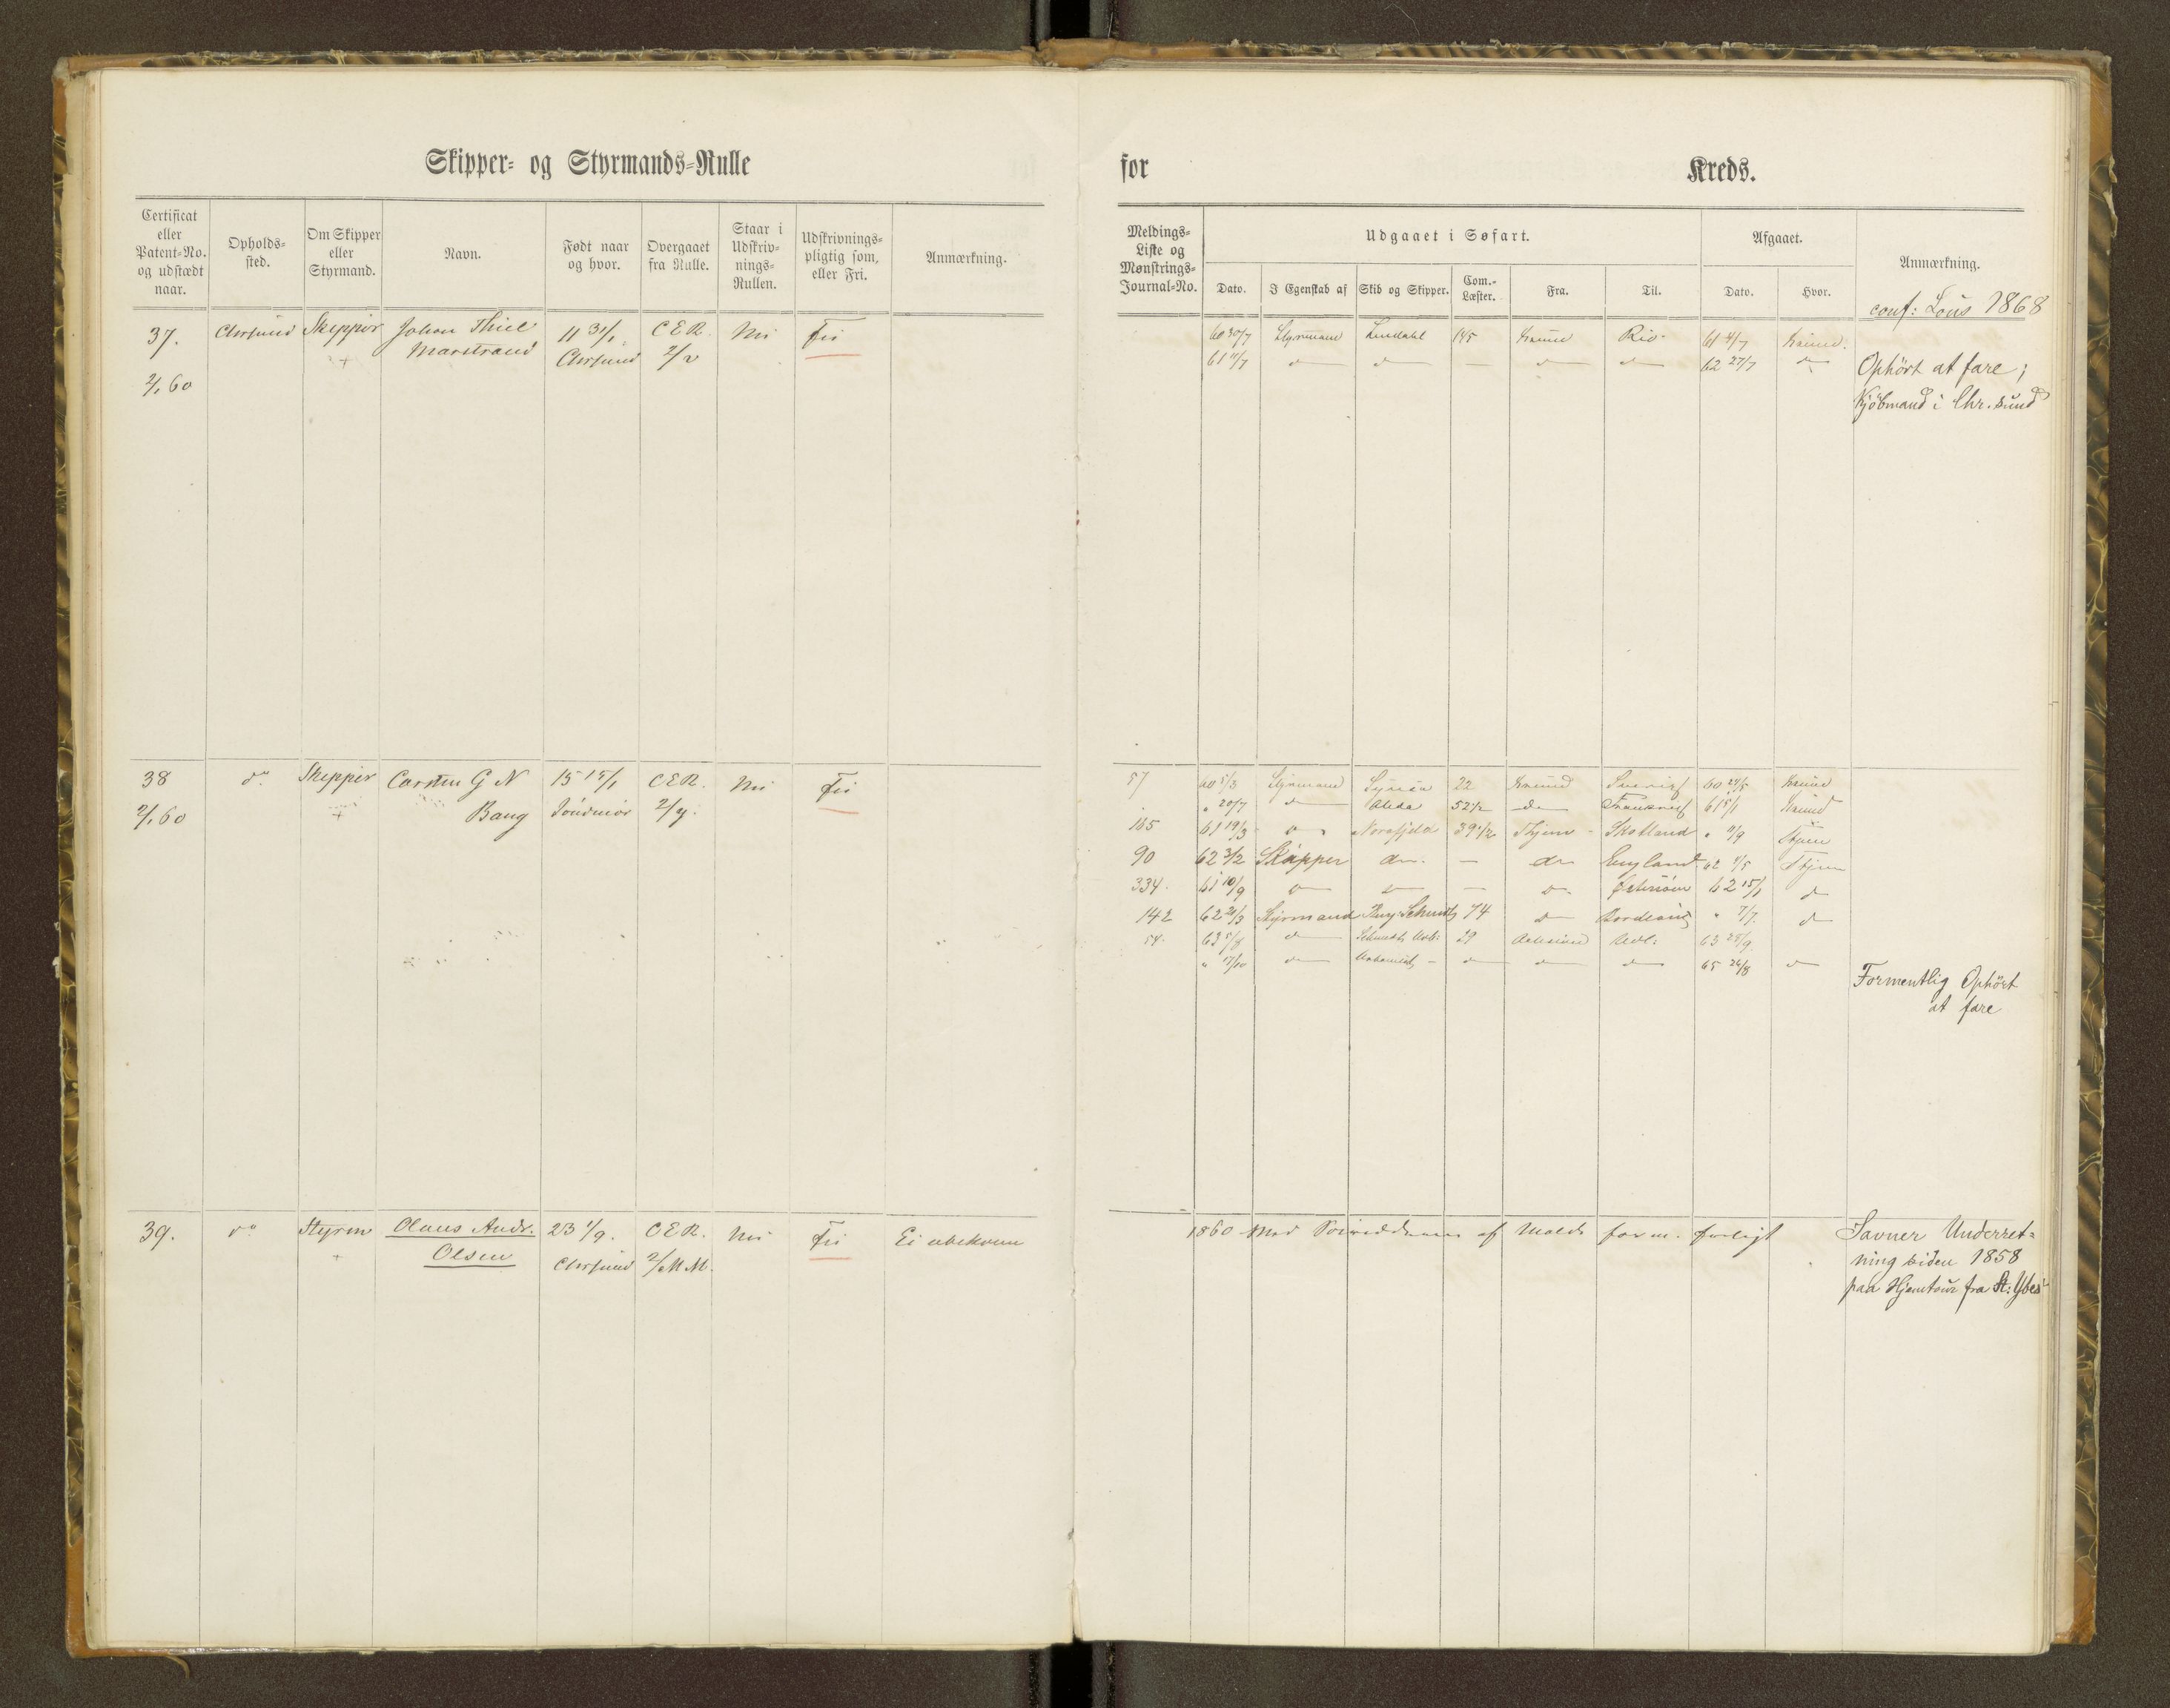 Skipper- og Styrmands-Rulle
Certificat eller Patent-No. og udstædt naar.
Opholds-sted.
Om Skipper eller Styrmand.
Navn.
Født naar og hvor.
Overgaaet fra Rulle.
Staar i Udskriv-nings-Rullen.
Udskrivnings-pligtig som, eller Fri.
Anmærkning.
37. Chrsund Skipper Johan Thiel 11 31/1 C E R. Nei Fri
+ Marstrand Chrsund 2/2
2/1 60
38 do Skipper Carsten G N 15 15/1 C E R. Nei Fri
2/1 60 + Bang Söndmör 2/4.
39. do Styrm Olaus Andr. 23 1/9. C E R. Nei Fri Ei
+ Olsen Chrsund
for Kreds.
Meldings-Liste og Mønstrings-Journal-No.
Udgaaet i Søfart.
Afgaaet.
Anmærkning.
Dato.
I Egenskab af
Skib og Skipper.
Com.-Læster.
Fra.
Til.
Dato.
Hvor.
conf: Lous 1868
60 30/7 Styrmand Lindahl 145 Ksund Rio 61 4/7 Ksund.
61 11/7 — — — — — 62 27/7 —
Ophört at fare;
Kjöbmand i Chr.sund
57 60 5/3 Styrmand 22 Ksund Sverig 60 24/5 Ksund
" 20/7 Alida 52 1/2 do 61 5/1 Ksund
165 61 19/3 39 1/2 Thjem Skotland " 11/9 Thjem
90 62 3/2 Skipper do. — do England 62 1/5 Thjem
334. 61 10/9 — do 62 15/1 do
142 62 21/3 Styrmand 74 do Bordeaux " 7/7. do
54. 63 5/8 do 29 63 28/9.
" 17/10 do do do do 65 26/8 do
Formentlig Ophört
at fare
1860 Med af Molde form. forligt
Savner Underret-
ning siden 1858
paa Hjemtour fra St: Ybes